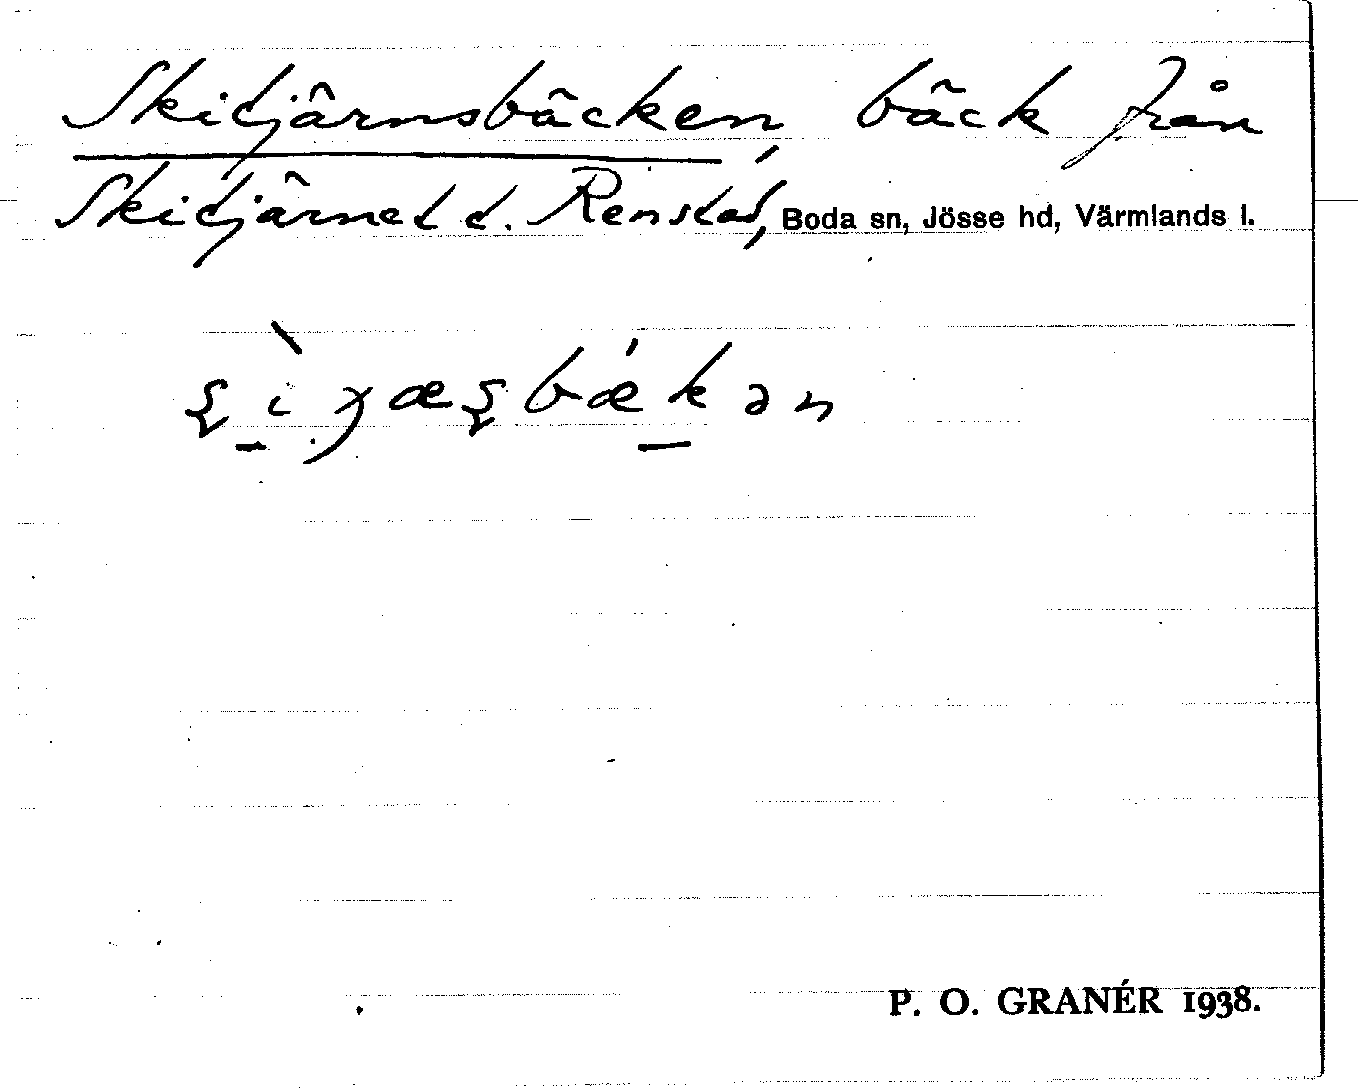 Skitjärnsbäcken, bäck från
Skitjärnet t. Renstad, Boda sn, Jösse hd, Värmlands l.
P. O. GRANÉR 1938.